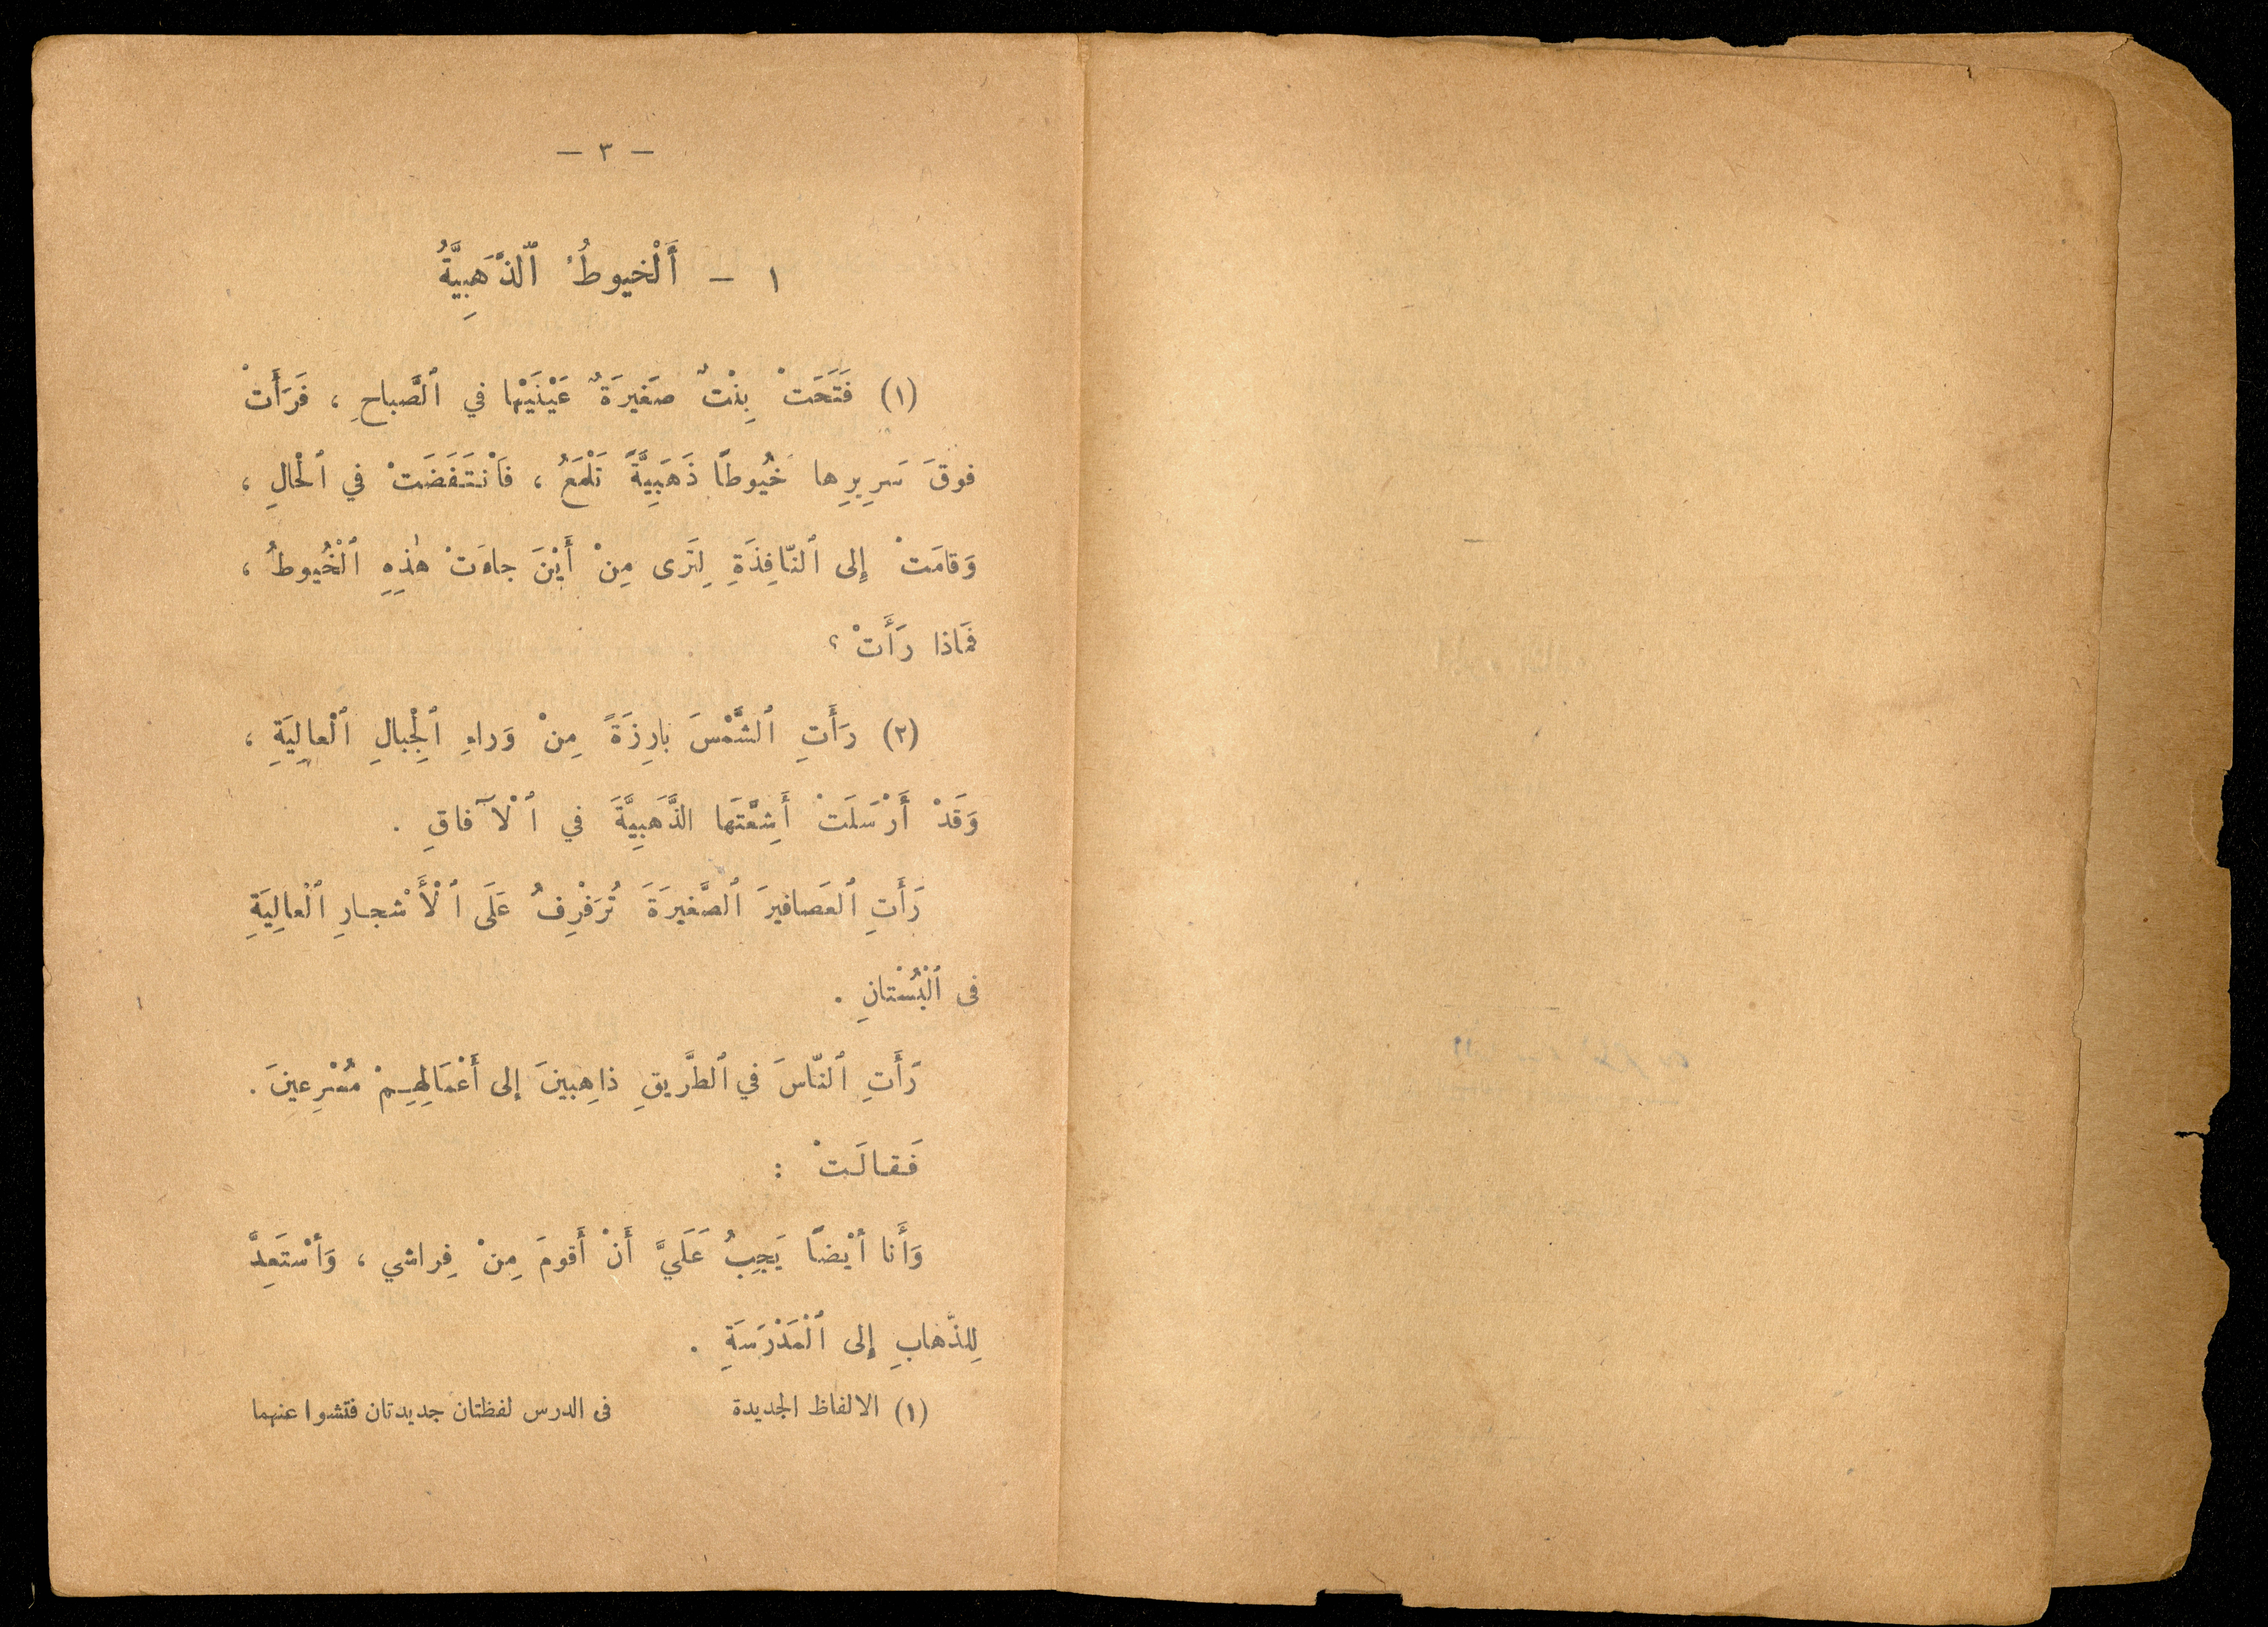 — ٣ —
١ — أَلْخيوطُ ٱلذَّهَبِيَّةُ
(١) فَتَحَتْ بِنْتٌ صَغيرَةٌ عَيْنَيْها في ٱلصَّباحِ ، فَرَأَتْ
فوقَ سَرِيرِها خُيُوطًا ذَهَبِيَّةً تَلْمَعُ ، فَٱنْتَفَضَتْ في ٱلْحالِ ،
وَقامَتْ إِلى ٱلنّافِذَةِ لِتَرى مِنْ أَيْنَ جاءَتْ هٰذِهِ ٱلْخُيُوطُ ،
فَماذا رَأَتْ ؟
(٢) رَأَتِ ٱلشَّمْسَ بارِزَةً مِنْ وَراءِ ٱلْجِبالِ ٱلْعالِيَةِ ،
وَقَدْ أَرْسَلَتْ أَشِعَّتَها الذَّهَبِيَّةَ في ٱلْآفاقِ .
رَأَتِ ٱلعَصافيرَ ٱلصَّغيرَةَ تُرَفْرِفُ عَلَى ٱلْأَشْجارِ ٱلْعالِيَةِ
فى ٱلْبُسْتانِ .
رَأَتِ ٱلنّاسَ في ٱلطَّريقِ ذاهِبينَ إلى أَعْمَالِهِمْ مُسْرِعينَ .
فَقالَتْ :
وَأَنا أَيْضًا يَجِبُ عَلَيَّ أَنْ أَقومَ مِنْ فِراشي ، وَأَسْتَعِدَّ
لِلذَّهابِ إِلى ٱلْمَدْرَسَةِ .
(١) الالفاظ الجديدة فى الدرس لفظتان جديدتان فتشوا عنهما